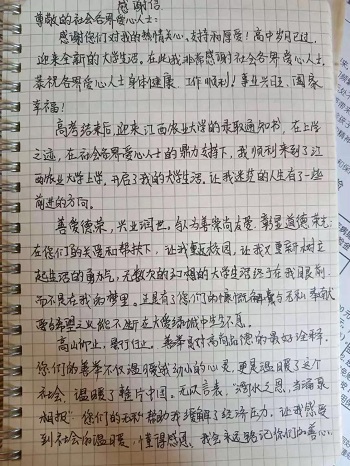 感谢信
尊敬的社会各界爱心人士：
感谢您们对我的热情关心、支持和厚爱！高中岁月已过，
迎来全新的大学生活。在此我非常感谢社会各界爱心人士，
恭祝各界爱心人士身体健康、工作顺利！事业兴旺、阖家
幸福！
高考结束后，迎来江西农业大学的录取通知书，在上学
之途，在社会各界爱心人士的鼎力支持下，我顺利来到了江
西农业大学上学，开启了我的大学生活。让我迷茫的人生有了一座
前进的方向。
善爱德荣，兴业润世，身为善崇尚友爱，彰显道德荣光
在您们的关爱和帮扶下，让我重返校园，让我又重新树立
起生活的勇气，无数次的幻想的大学生活终于在我眼前
而不是在我的梦里。正是有了您们的慷慨解囊与无私奉献
爱与希望之火能不断在大爱绿城中生生不息。
高山仰止，景行行止。善举是对高尚品德的最好诠释，
您们的善举不仅温暖我幼小的心灵，更是温暖了这个
社会，温暖了整片中国。无以言表，“滴水之恩，当涌泉
相报”您们的无私帮助我缓解了经济压力，让我感受
到社会的温暖，懂得感恩，我会永远铭记你们的善心，